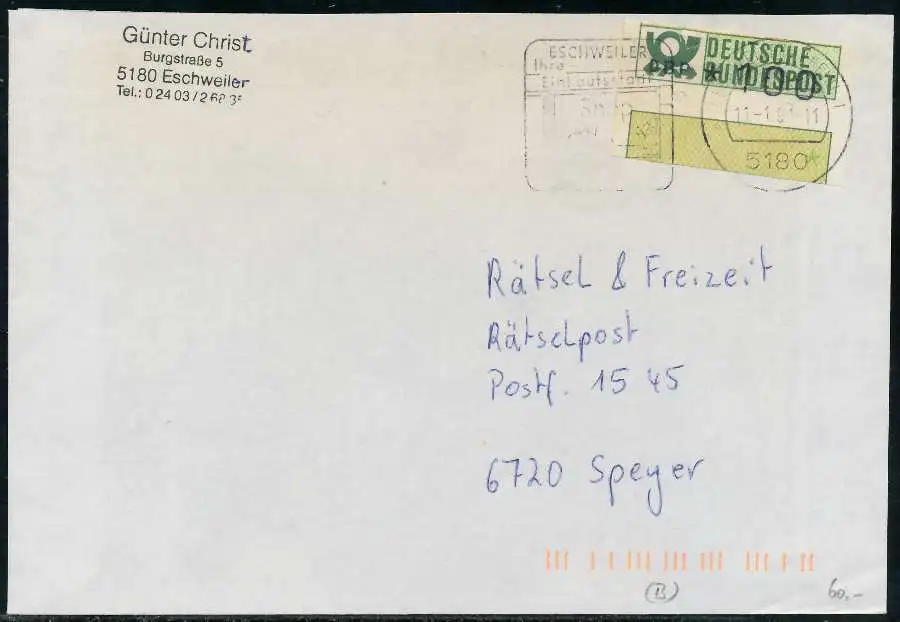 Günter Christ
Burgstraße 5
5180 Eschweiler
Tel.: 02403/268
ESCHWEILER
Ihre
Einkaufsstadt
DEUTSCHE
BUNDESPOST
DBP
*100
5180
Rätsel & Freizeit
Rätselpost
Postf. 15 45
6720 Speyer
(B)
60,-